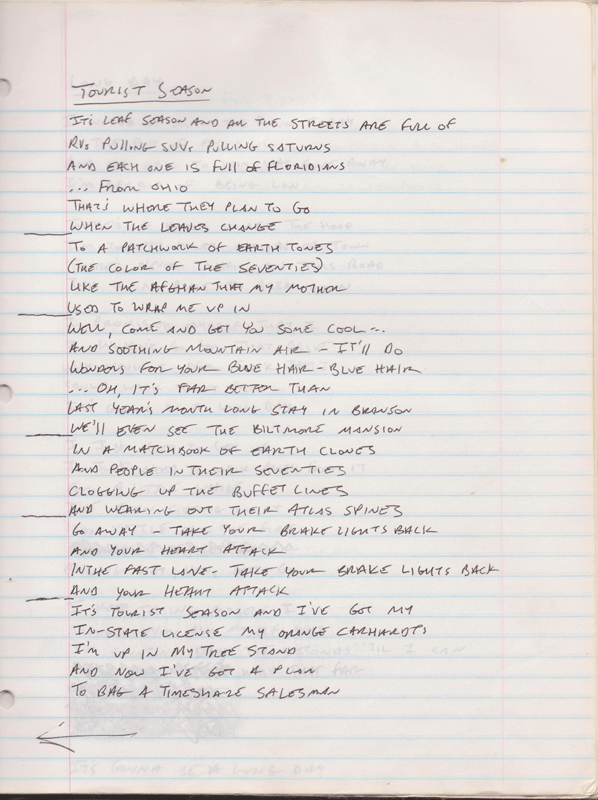 TOURIST SEASON
IT'S LEAF SEASON AND ALL THE STREETS ARE FULL OF
RVs PULLING SUVs PULLING SATURNS
AND EACH ONE IS FULL OF FLORIDIANS
... FROM OHIO
THAT'S WHERE THEY PLAN TO GO
WHEN THE LEAVES CHANGE
TO A PATCHWORK OF EARTH TONES
(THE COLOR OF THE SEVENTIES)
LIKE THE AFGHAN THAT MY MOTHER
USED TO WRAP ME UP IN
WELL, COME AND GET YOU SOME COOL...
AND SOOTHING MOUNTAIN AIR - IT'LL DO
WONDERS FOR YOUR BLUE HAIR - BLUE HAIR
... OH, IT'S FAR BETTER THAN
LAST YEAR'S MONTH LONG STAY IN BRANSON
WE'LL EVEN SEE THE BILTMORE MANSION
IN A MATCHBOOK OF EARTH CLONES
AND PEOPLE IN THEIR SEVENTIES
CLOGGING UP THE BUFFET LINES
AND WEARING OUT THEIR ATLAS SPINES
GO AWAY - TAKE YOUR BRAKE LIGHTS BACK
AND YOUR HEART ATTACK
IN THE FAST LANE - TAKE YOUR BRAKE LIGHTS BACK
AND YOUR HEART ATTACK
IT'S TOURIST SEASON AND I'VE GOT MY
IN-STATE LICENSE MY ORANGE CARHARDTS
I'M UP IN MY TREE STAND
AND NOW I'VE GOT A PLAN
TO BAG A TIMESHARE SALESMAN
ITS GONNA BE A LONG DAY